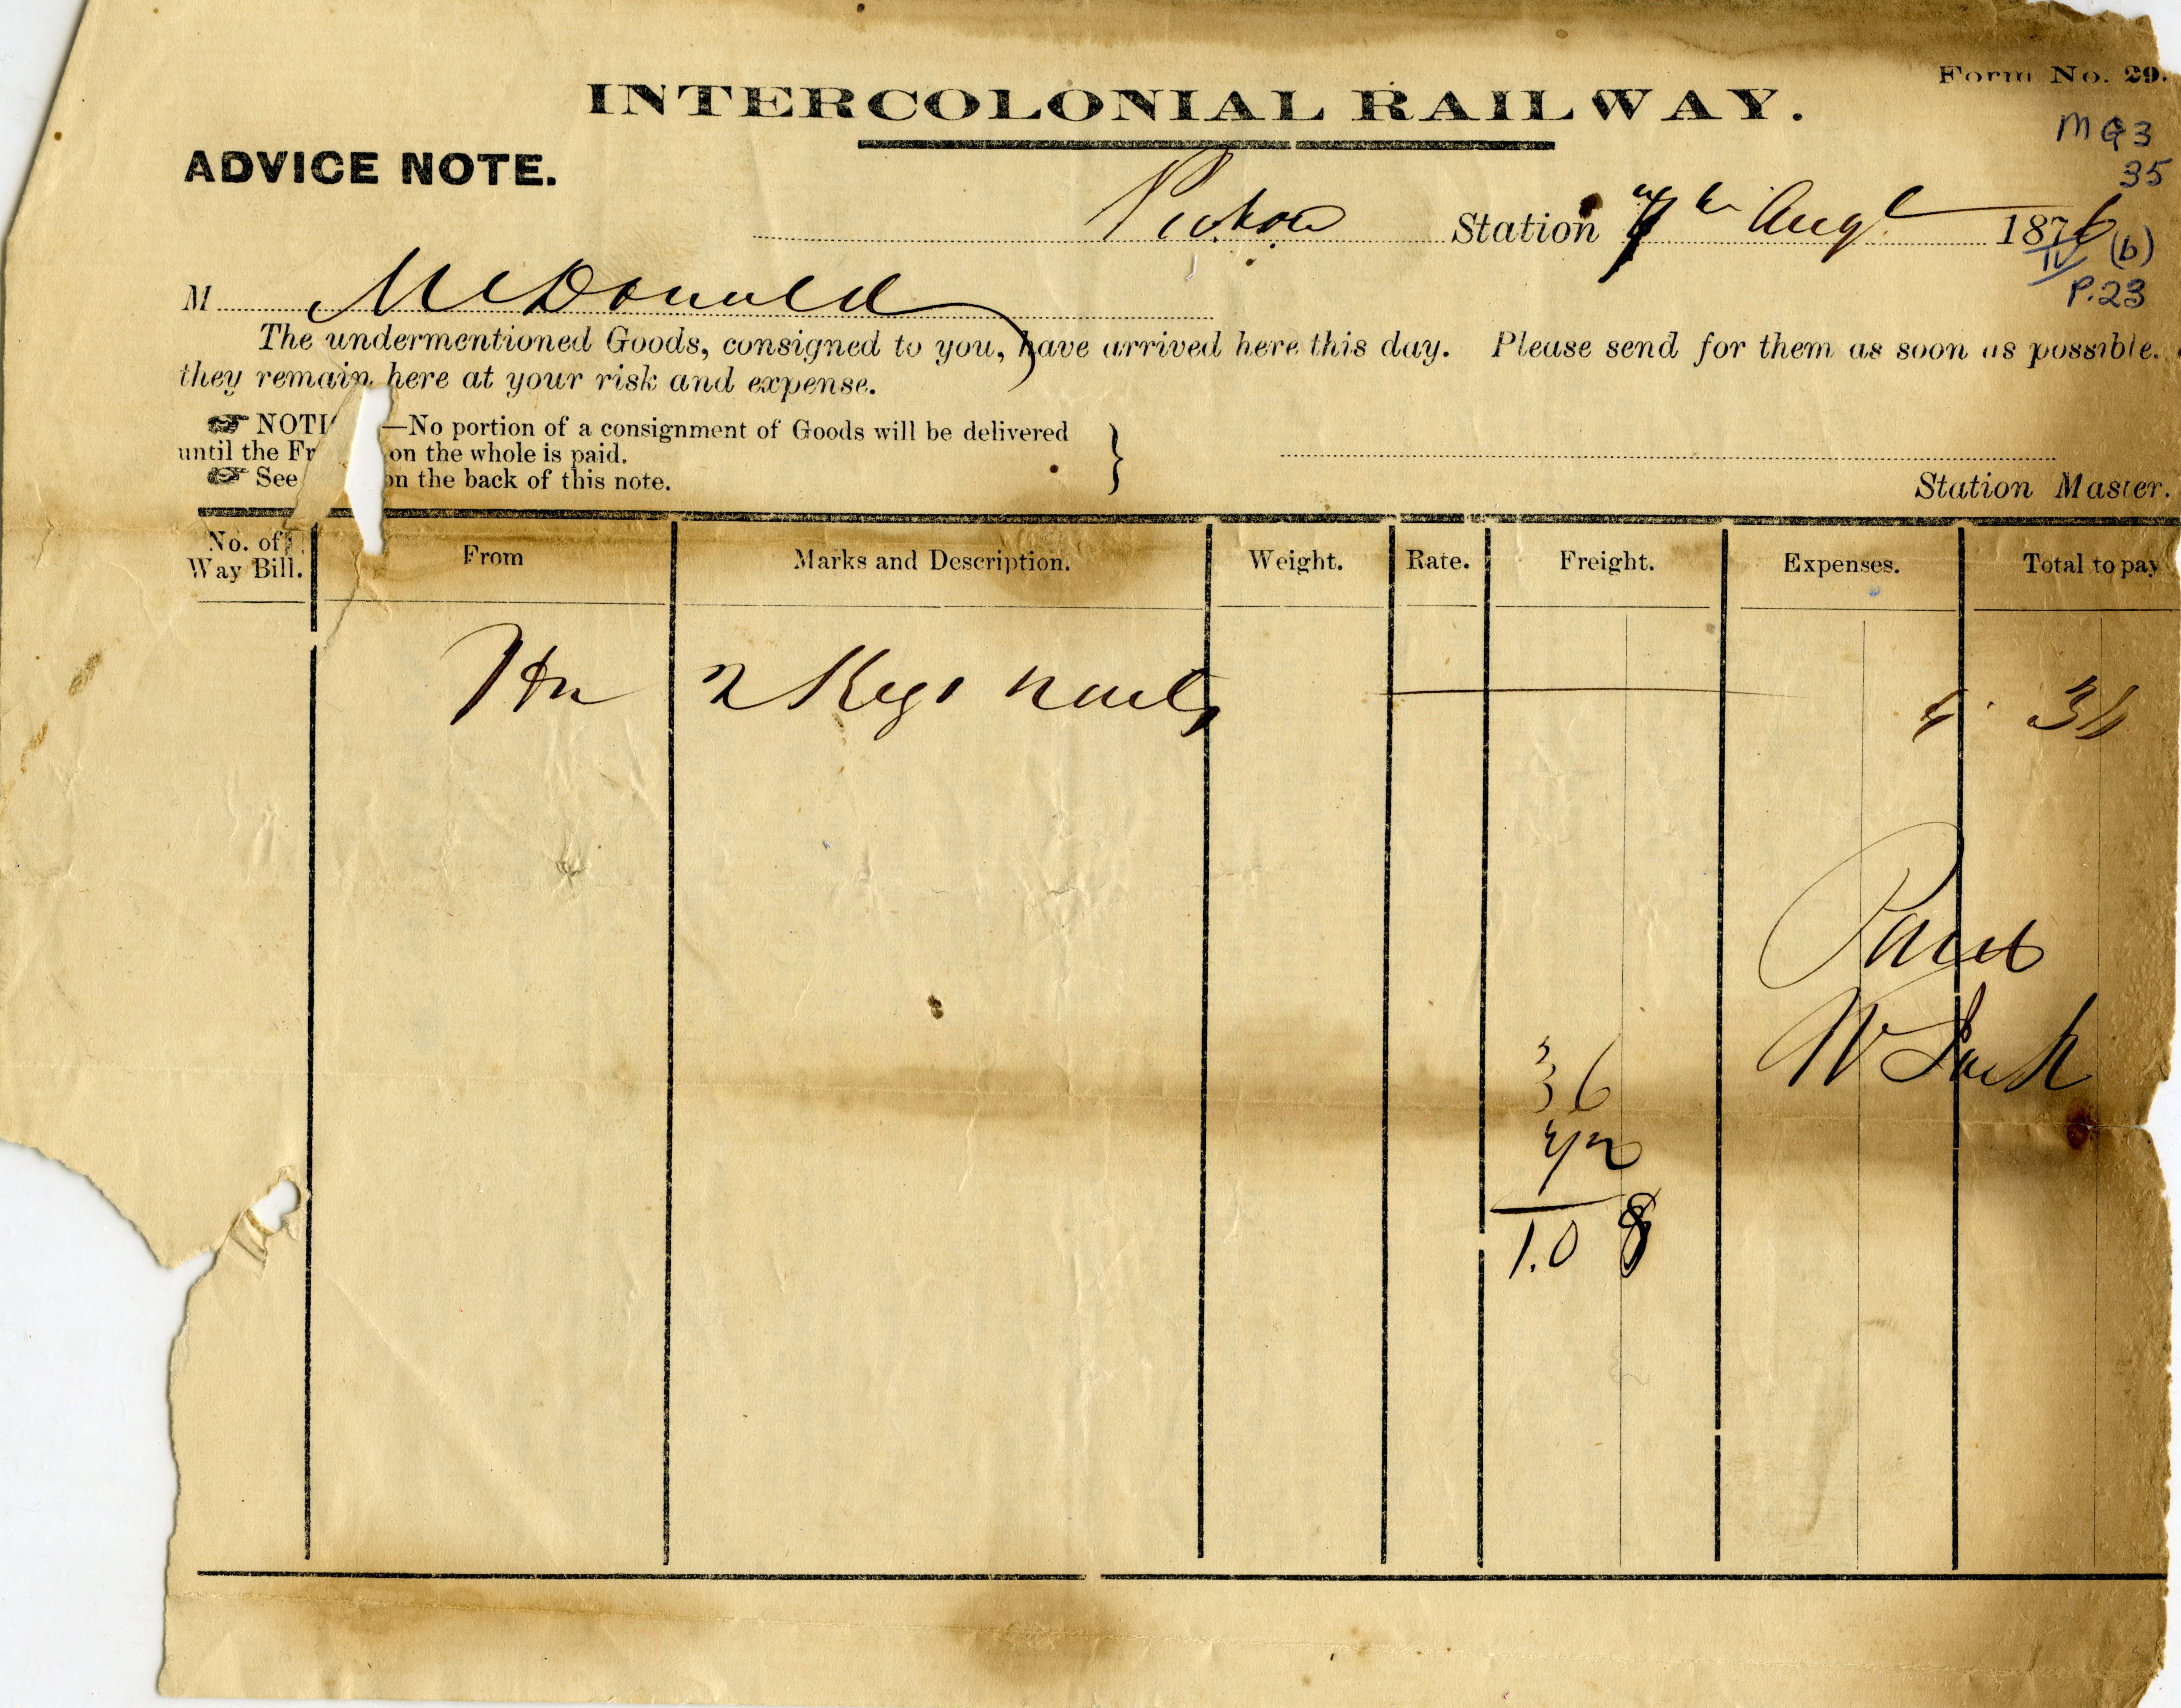 Form No. 29.
INTERCOLONIAL RAILWAY.
MG3
35
ADVICE NOTE.
Pictou Station 7th Augt 1876
IV (b)
P.23
M McDonald
The undermentioned Goods, consigned to you, have arrived here this day. Please send for them as soon as possible.
they remain here at your risk and expense.
☞ NOTI —No portion of a consignment of Goods will be delivered
until the Fr on the whole is paid.
☞ See on the back of this note.
Station Master.
No. of Way Bill. From Marks and Description. Weight. Rate. Freight. Expenses. Total to pay
2 Kegs nails 36
Paid
W Jack
36
72
1.08